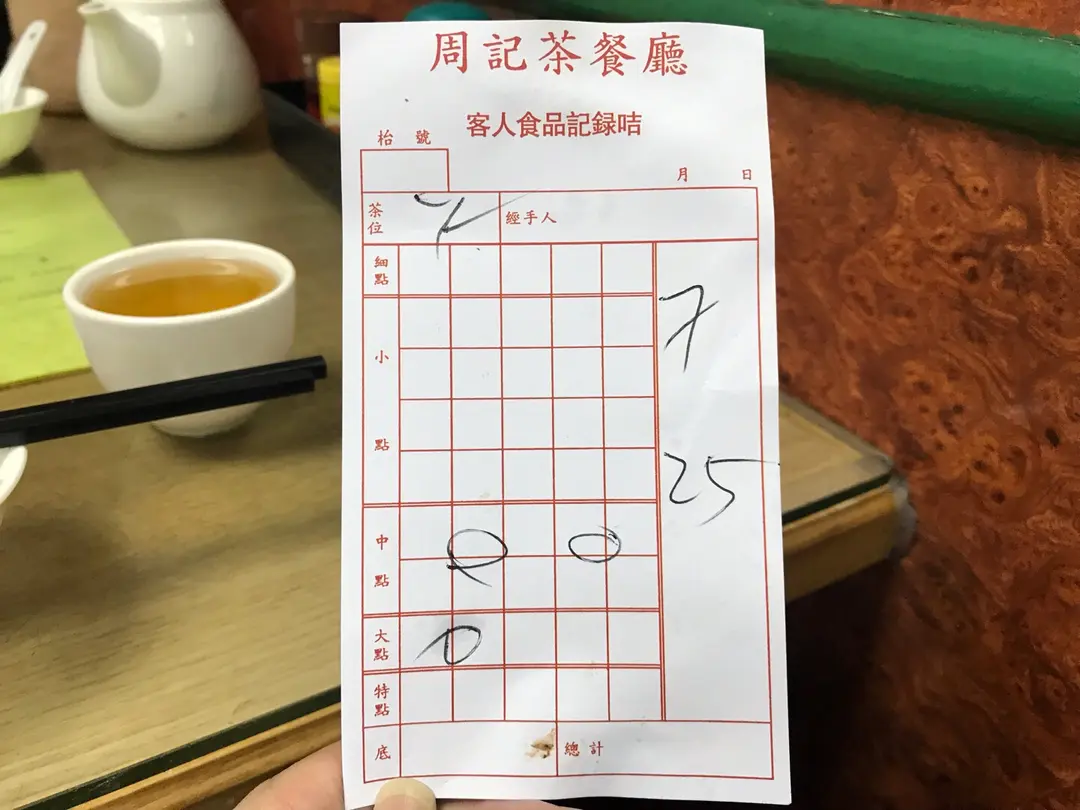 周記茶餐廳
客人食品記録咭
枱 號
月 日
茶位
經手人
細點
7
小點
25
中點
大點
特點
底
總計